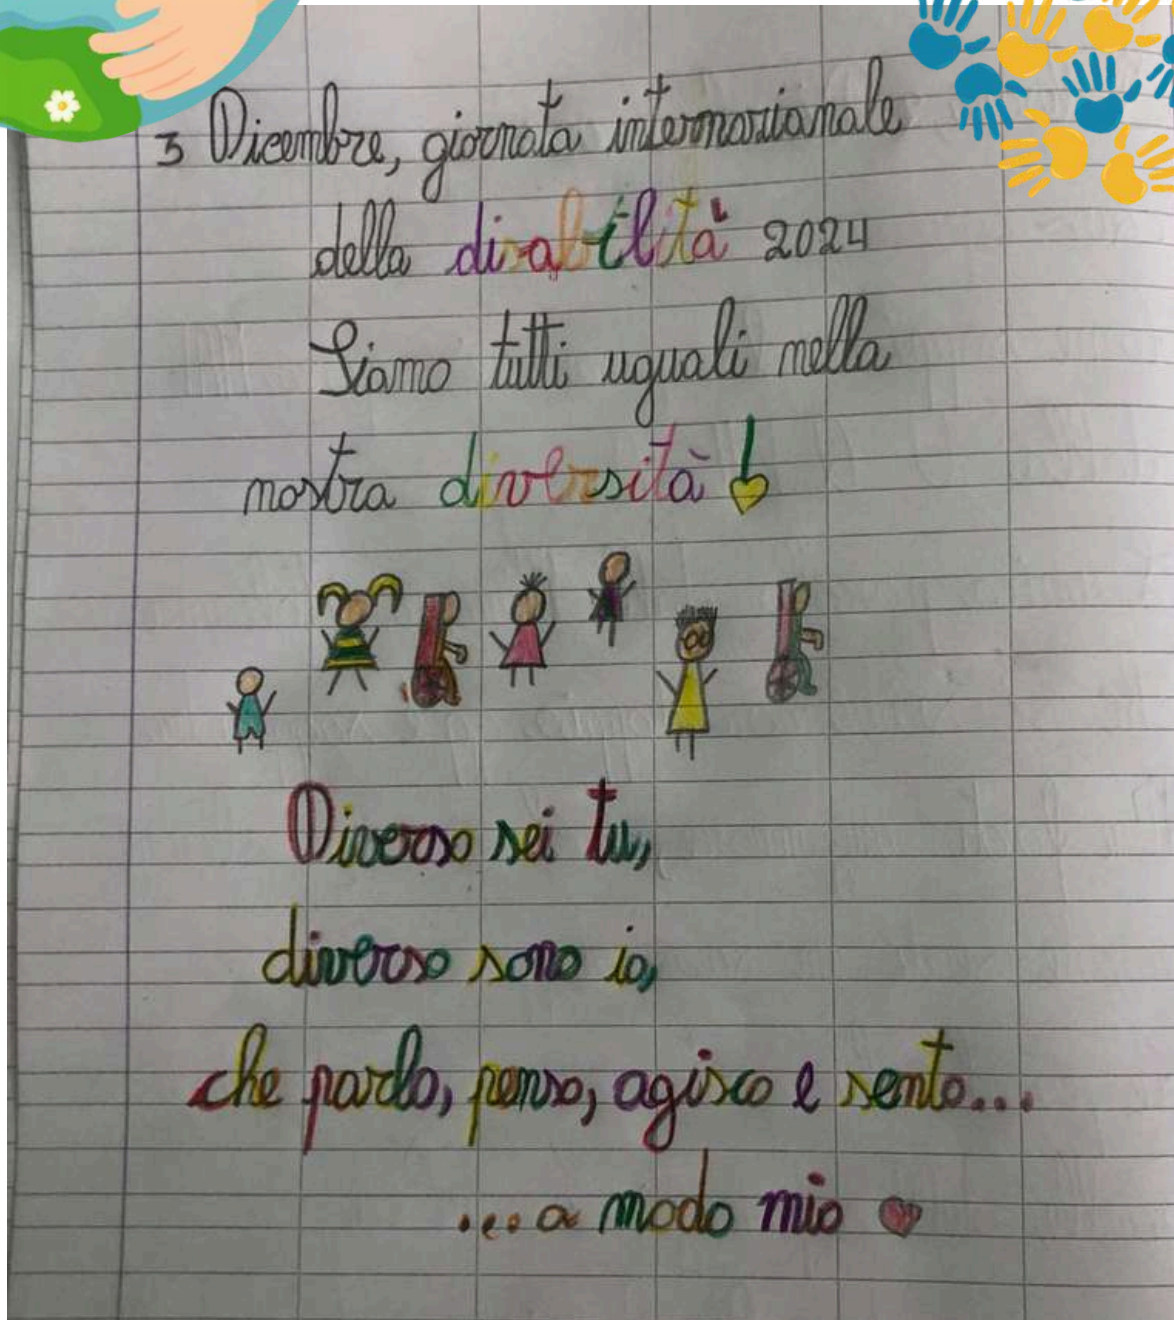 3 Dicembre, giornata internazionale
della disabilità 2024
Siamo tutti uguali nella
nostra diversità!
Diverso sei tu,
diverso sono io,
che parlo, penso, agisco e sento...
...a modo mio